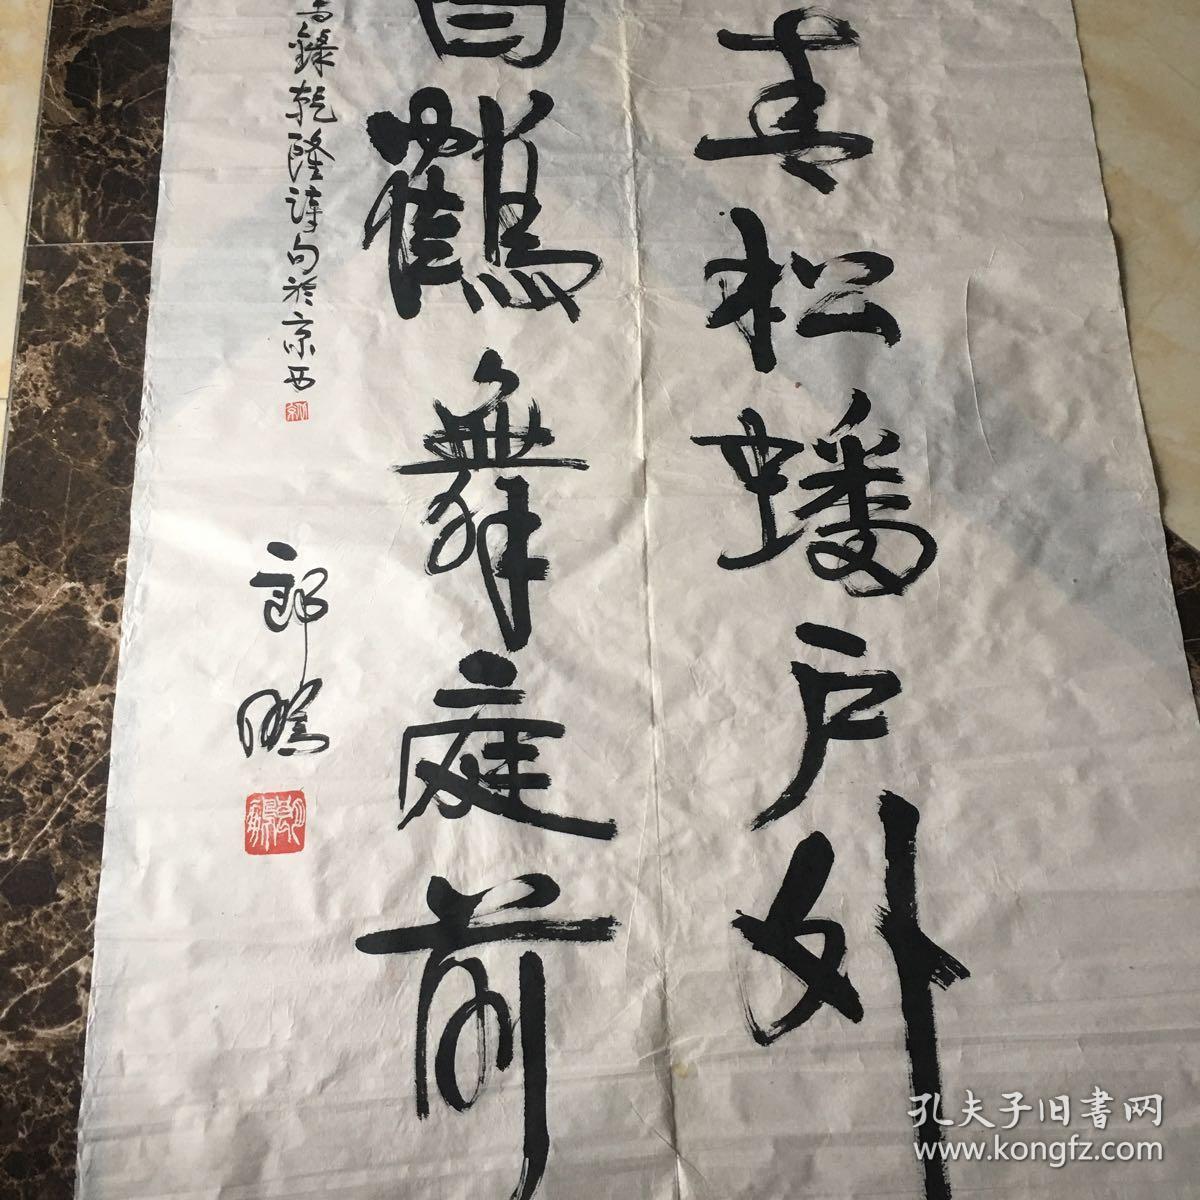 青松蟠戶外
白鶴舞庭前
录乾隆诗句於京西
郎鵬
孔夫子旧書网
www.kongfz.com